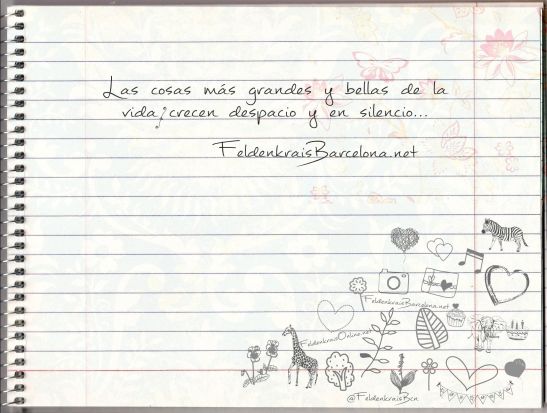 Las cosas más grandes y bellas de la
vida, crecen despacio y en silencio...
FeldenkraisBarcelona.net
FeldenkraisBarcelona.net
FeldenkraisOnline.net
@FeldenkraisBcn